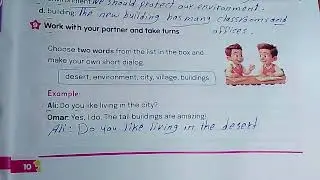 We should protect our environment.
d. building: The new building has many classrooms and
offices.
Work with your partner and take turns
Choose two words from the list in the box and
make your own short dialog.
desert, environment, city, village, buildings
Example:
Ali: Do you like living in the city?
Omar: Yes, I do. The tall buildings are amazing!
Ali: Do you like living in the desert
10